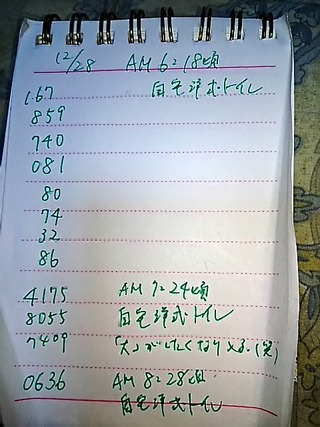 12/28 AM 6:18頃
167 自宅洋式トイレ
859
740
081
80
74
32
86
4175 AM 7:24頃
8055 自宅洋式トイレ
7409 がしたくなり (笑)
0636 AM 8:28頃
自宅洋式トイレ